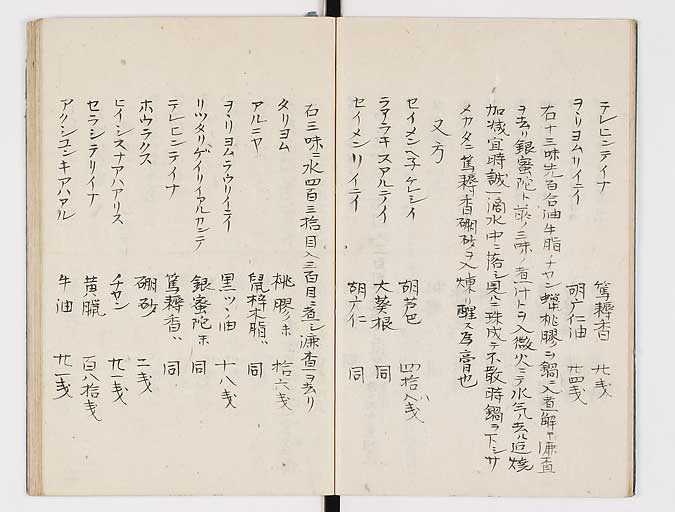 テレヒンテイナ 篤耨香 廿戔
ヲヽリヨムリイニイ 胡广仁油 廿四戔
右十三味先百合油牛脂チヤン蝋桃膠ヲ鍋ニ入煮解シ濂査
ヲ去リ銀蜜陀ト前ノ三味ノ煮汁トヲ入微火ミテ水気ノ去ル迠焼
加減宜時誠一滴水中ニ落シ奥ニ珠成テ不散時鍋ヲ下シサ
メカタニ篤耨香硼砂ヲ入煉リ醒ス為膏也
又方
セイメン ケレシイ 胡芦巴 四拾八戔
ラアラキスアルテイ 大葵根 同
セイメンリイニイ 胡广仁 同
右三味ニ水四百三拾目入三百目ニ煮シ濂査ヲ去リ
タリヨム 桃膠 拾六戔
アルニヤ 脂 同
ヲヽリヨムラウリイニイ 黒ツヽ油 十八戔
リツタリゲイリイアルカンテ 銀蜜陀 同
テレヒンテイナ 篤耨香 同
ホウラクス 硼砂 二戔
ヒイシスナアハアリス チヤン 廿一戔
セラシテリイナ 黄臘 百八拾戔
アクシユンキアハアル 牛油 廿一戔